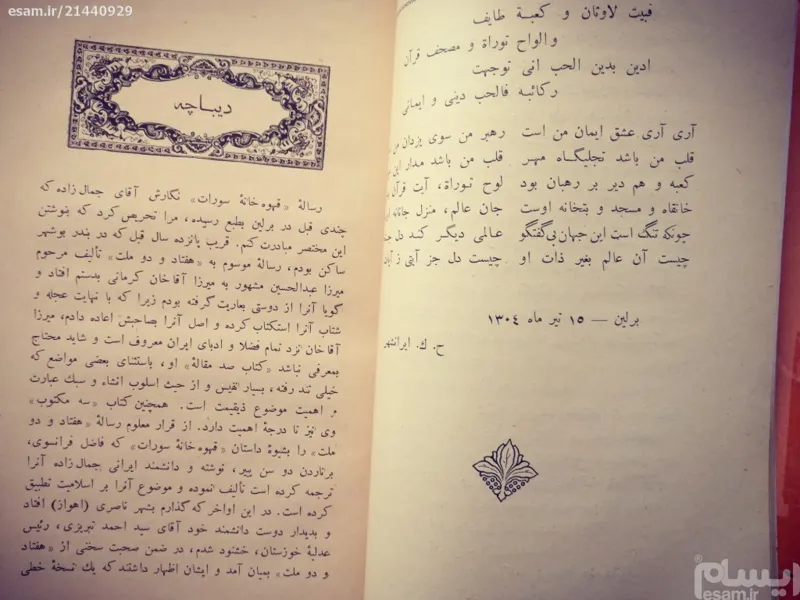 esam.ir/21440929
فبیت لاوثان و کعبة طایف
و الواح توراة و مصحف قرآن
ادین بدین الحب انی توجهت
رکائبه فالحب دینی و ایمانی
آری آری عشق ایمان من است رهبر من سوی یزدان من
قلب من باشد تجلیگاه مهر قلب من باشد مدار این
کعبه و هم دیر بر رهبان بود لوح توراة، آیت قرآن
خانقاه و مسجد و بتخانه اوست جان عالم، منزل جانانه
چونکه تنگ است این جهان بی‌گفتگو عالمی دیگر کند دل
چیست آن عالم بغیر ذات او چیست دل جز آیتی ز
برلین — ۱۵ تیر ماه ۱۳۰٤
ح. ك. ایرانشهر
دیباچه
رسالهٔ «قهوه خانهٔ سورات» نگارش آقای جمال زاده که
چندی قبل در برلین بطبع رسیده، مرا تحریص کرد که بنوشتن
این مختصر مبادرت کنم. قریب پانزده سال قبل که در بندر بوشهر
ساکن بودم، رسالهٔ موسوم به «هفتاد و دو ملت» تألیف مرحوم
میرزا عبدالحسین مشهور به میرزا آقاخان کرمانی بدستم افتاد و
گویا آنرا از دوستی بعاریت گرفته بودم زیرا که با نهایت عجله و
شتاب آنرا استکتاب کرده و اصل آنرا بصاحبش اعاده دادم، میرزا
آقاخان نزد تمام فضلا و ادبای ایران معروف است و شاید محتاج
بمعرفی نباشد «کتاب صد مقالهٔ» او، باستثنای بعضی مواضع که
خیلی تند رفته، بسیار نفیس و از حیث اسلوب انشاء و سبك عبارت
و اهمیت موضوع ذیقیمت است. همچنین کتاب «سه مکتوب»
وی نیز تا درجهٔ اهمیت دارد. از قرار معلوم رسالهٔ «هفتاد و دو
ملت» را بشیوهٔ داستان «قهوه خانهٔ سورات» که فاضل فرانسوی،
برناردن دو سن پیر، نوشته و دانشمند ایرانی جمال زاده آنرا
ترجمه کرده است تألیف نموده و موضوع آنرا بر اسلامیت تطبیق
کرده است. در این اواخر که گذارم بشهر ناصری (اهواز) افتاد
و بدیدار دوست دانشمند خود آقای سید احمد تبریزی، رئیس
عدلیهٔ خوزستان، خشنود شدم، در ضمن صحبت سخنی از «هفتاد
و دو ملت» بمیان آمد و ایشان اظهار داشتند که یك نسخهٔ خطی
ایسام
esam.ir